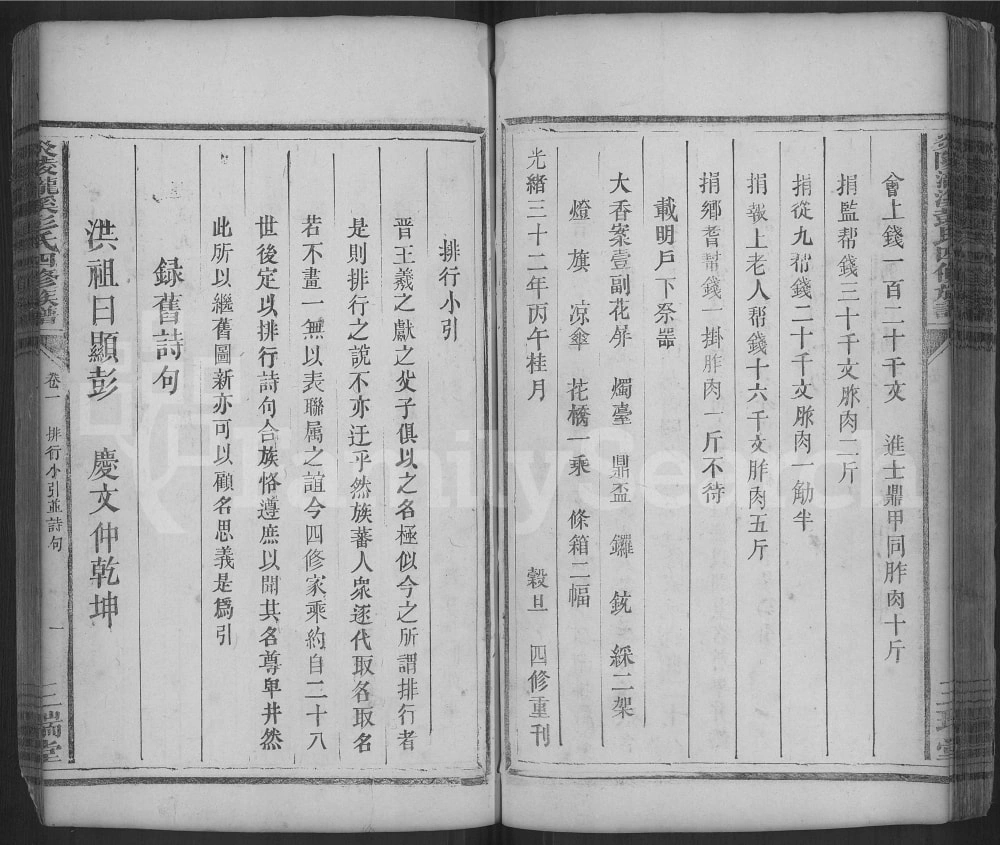 會上錢一百二十千文　進士鼎甲同胙肉十斤
捐監帮錢三十千文胙肉二斤
捐從九帮錢二十千文胙肉一觔半
捐報上老人帮錢十六千文胙肉五斤
捐鄉耆幫錢一掛胙肉一斤不待
載明戶下祭噐
大香案壹副花屏　燭臺　鼎盃　鑼　銃　綵二架
燈　旗　凉傘　花橋一乘　條箱二幅
光緒三十二年丙午桂月　穀旦　四修重刊
炎陵瀧溪彭氏四修族譜　卷一　排行小引並詩句　一　三瑞堂
排行小引
晋王羲之獻之父子俱以之名極似今之所謂排行者
是則排行之説不亦迂乎然族蕃人衆逐代取名取名
若不畫一無以表聯属之誼今四修家乘約自二十八
世後定以排行詩句合族恪遵庶以聞其名尊卑井然
此所以繼舊圖新亦可以顧名思義是爲引
録舊詩句
洪祖日顯彭　慶文仲乾坤
FamilySearch